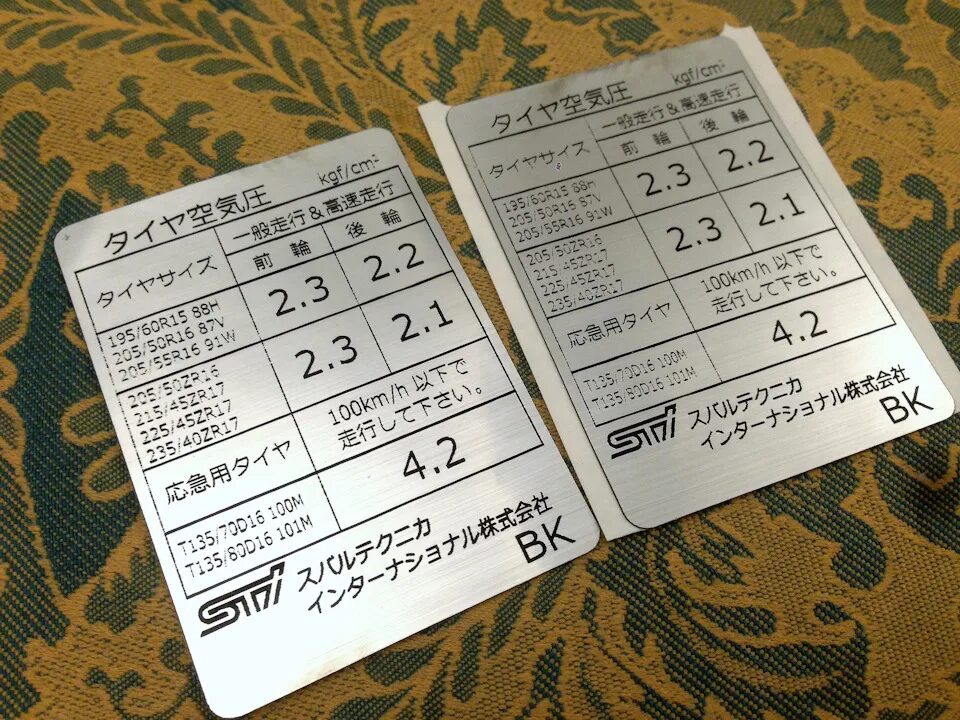 タイヤ空気圧 kgf/cm²
タイヤサイズ 一般走行&高速走行
前輪 後輪
195/60R15 88H
205/50R16 87V
205/55R16 91W
2.3 2.2
205/50ZR16
215/45ZR17
225/45ZR17
235/40ZR17
2.3 2.1
応急用タイヤ 100km/h 以下で
走行して下さい。
T135/70D16 100M
T135/80D16 101M
4.2
STi スバルテクニカ
インターナショナル株式会社
BK
タイヤ空気圧 kgf/cm²
タイヤサイズ 一般走行&高速走行
前輪 後輪
195/60R15 88H
205/50R16 87V
205/55R16 91W
2.3 2.2
205/50ZR16
215/45ZR17
225/45ZR17
235/40ZR17
2.3 2.1
応急用タイヤ 100km/h 以下で
走行して下さい。
T135/70D16 100M
T135/80D16 101M
4.2
STi スバルテクニカ
インターナショナル株式会社
BK